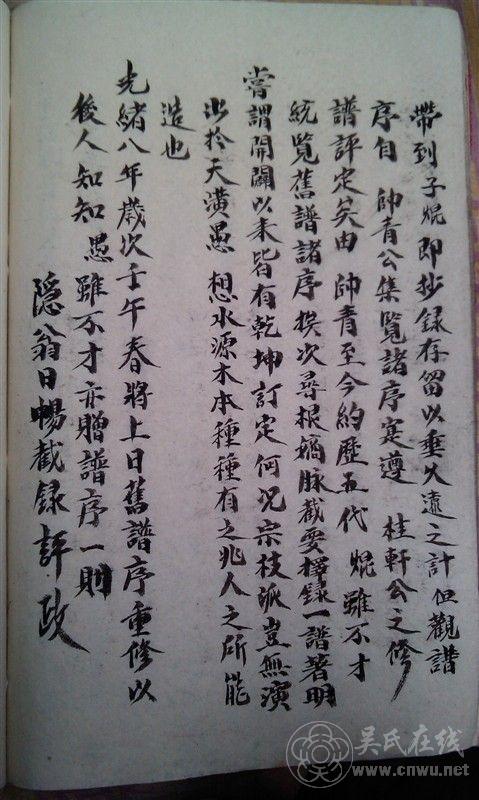 帶到子焜即抄錄存留以垂久遠之計但觀譜
序自 帥青公集覽諸序寔遵 桂軒公之修
譜評定矣由 帥青至今約歷五代 焜雖不才
統覽舊譜諸序挨次尋根嫡脉截要擇錄一譜著明
嘗謂開闢以來皆有乾坤訂定何況宗枝派豈無演
出於天潢愚 想水源木本種種有之兆人之所能
造也
光緒八年歲次壬午春將上日舊譜序重修以
後人知知 愚雖不才亦贈譜序一則
隱翁日暢截錄評政
吴氏在线
www.cnwu.net